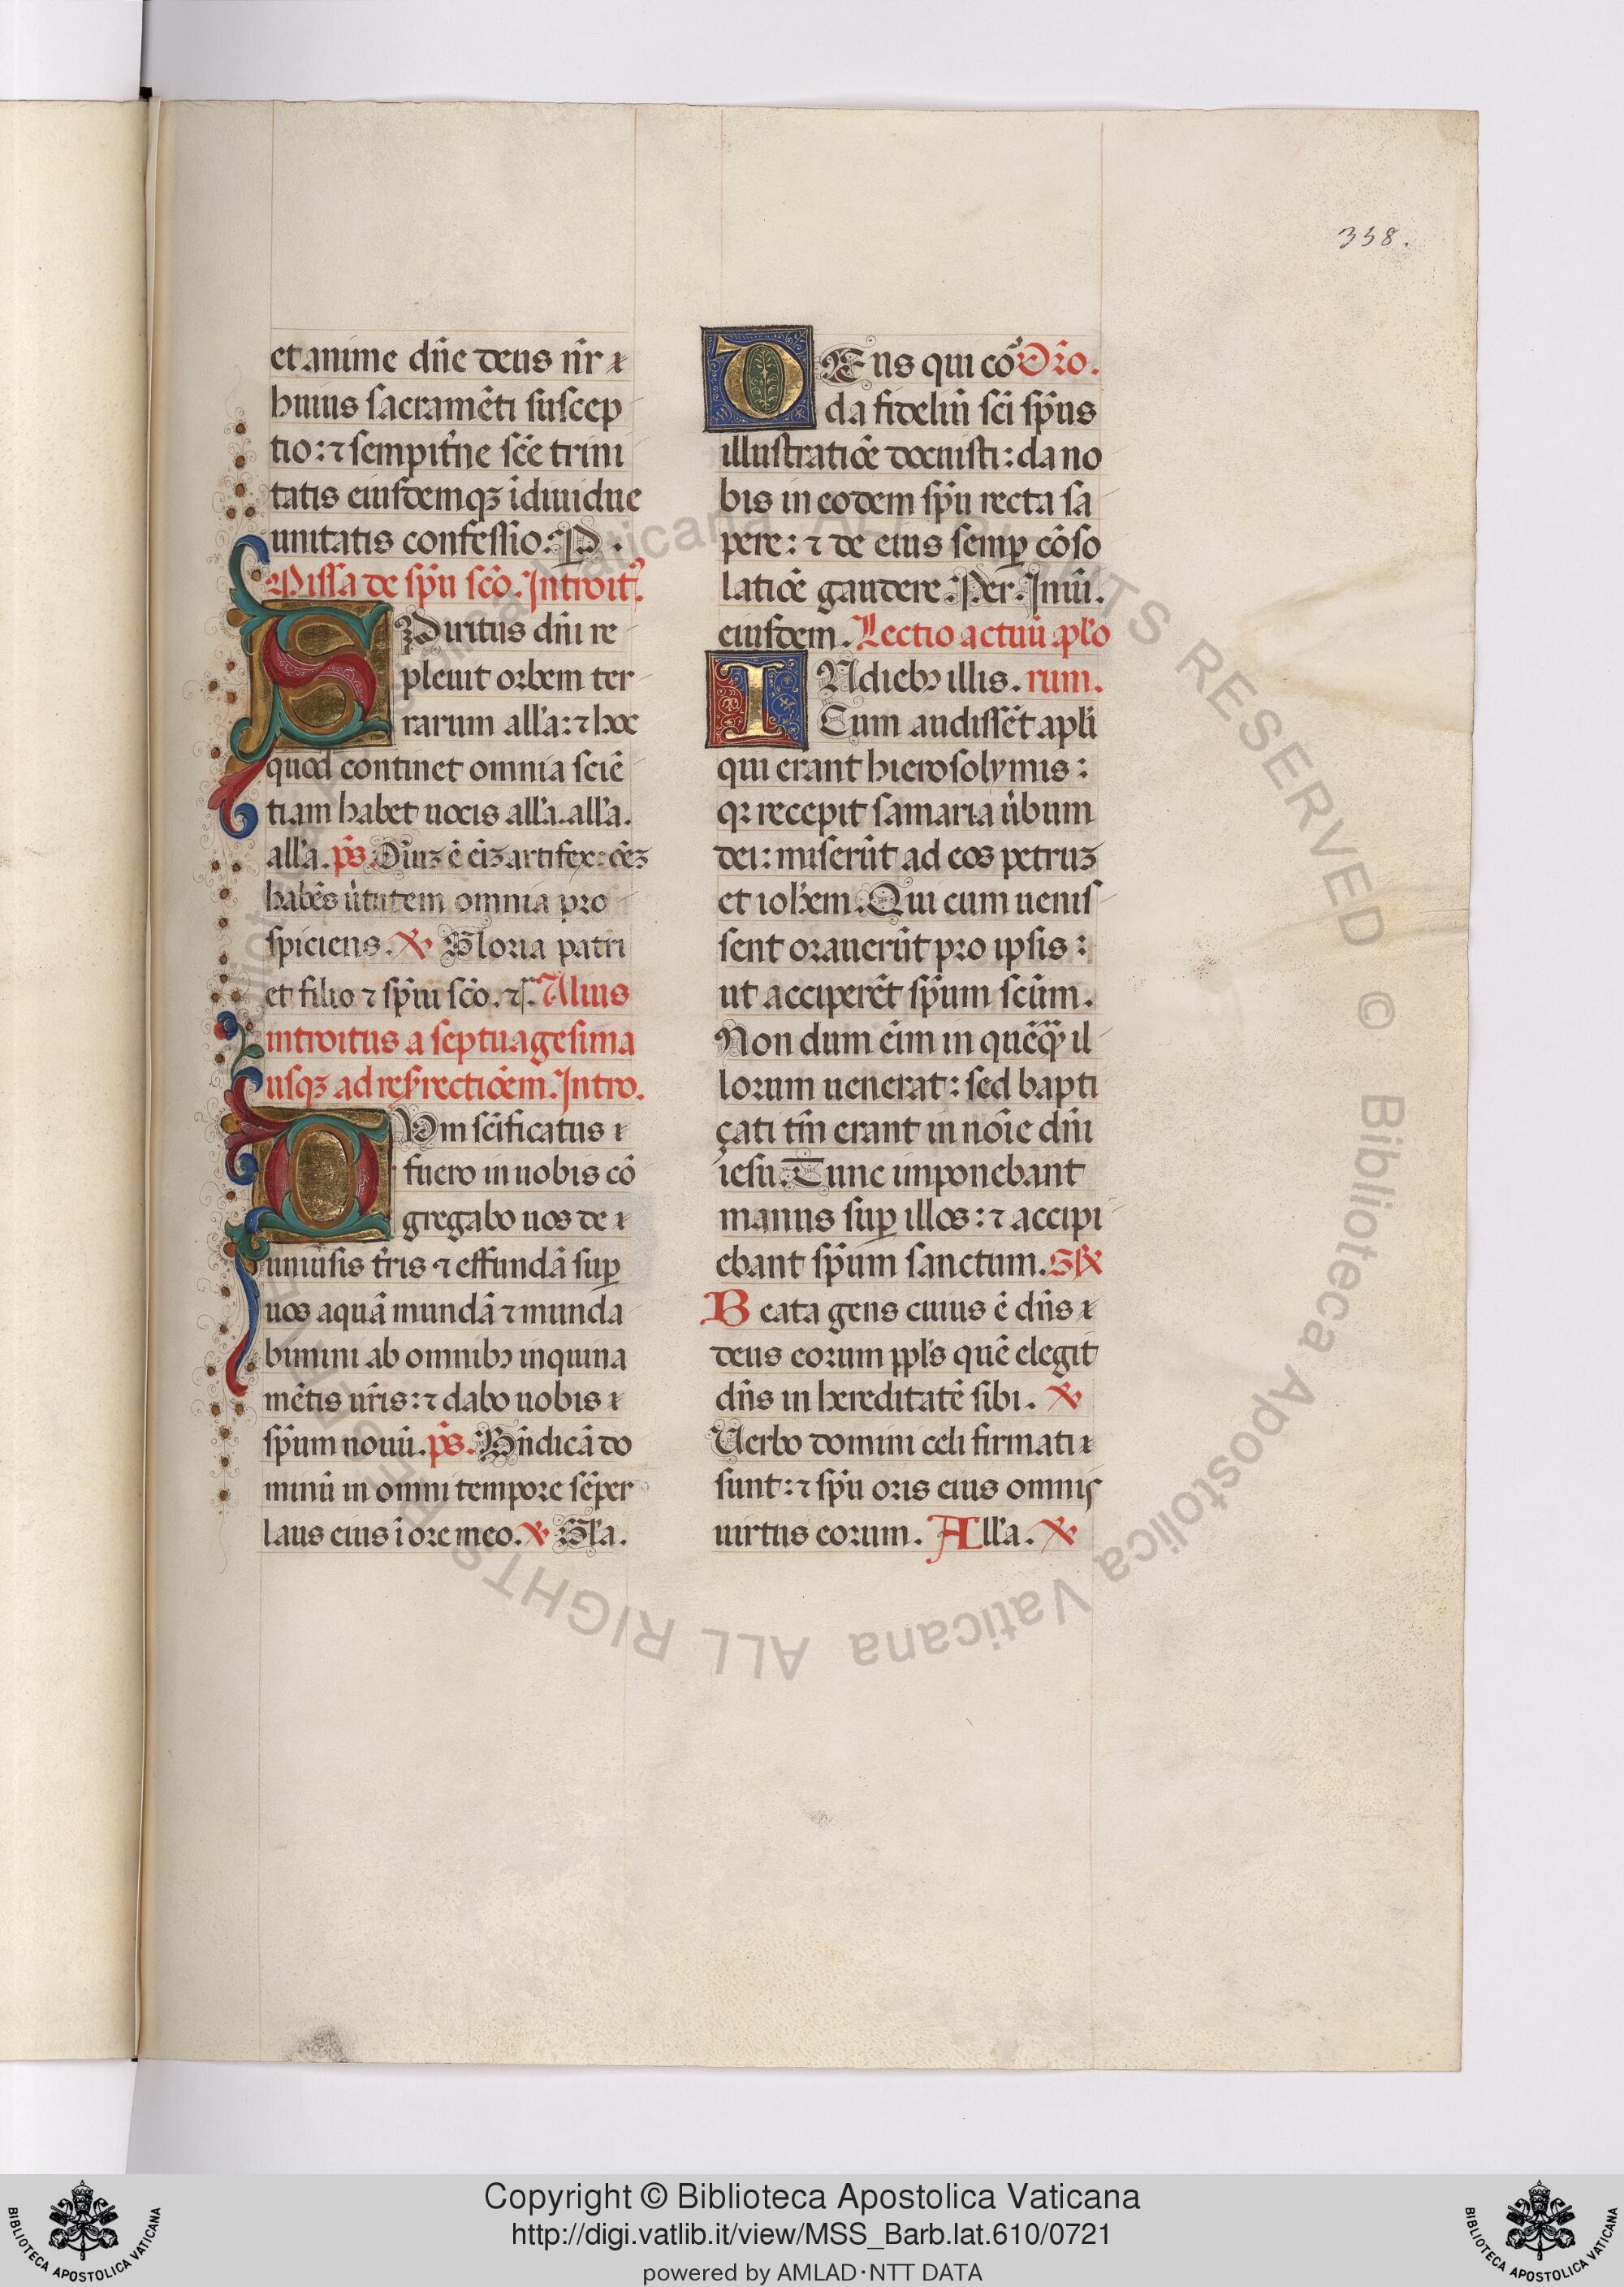 338.
et anime dñe deus nr̃ ⁊
huius sacramẽti suscep
tio: ⁊ sempit̃ne sc̃e trini
tatis eiusdemqꝫ ĩdiuidue
unitatis confessio. P.
Missa de sp̃u sc̃o. Introitꝰ.
SPiritus dñi re
pleuit orbem ter
rarum all'a: ⁊ hoc
quod continet omnia sciẽ
tiam habet uocis all'a. all'a.
all'a. p̃s.
habẽs ũtutem omnia pro
spiciens. ℣ Gloria patri
et filio ⁊ sp̃iu sc̃o. ⁊c̃. Alius
introitus a septuagesima
usqꝫ ad resr̃rectiõem. Intro.
DVm sc̃ificatus
fuero in uobis cõ
gregabo uos de
uniũsis t̃ris ⁊ effundã suꝑ
uos aquã mundã ⁊ munda
bimini ab omnibꝫ inquina
mẽtis ur̃is: ⁊ dabo uobis
sp̃um nouũ. p̃s. Bñdicã do
minũ in omni tempore sẽper
laus eius ĩ ore meo. ℣ Gl'a.
DEus qui cor̃ Or̃o.
da fideliũ sc̃i sp̃us
illustratiõe docuisti: da no
bis in eodem sp̃u recta sa
pere: ⁊ de eius semꝑ cõso
latiõe gaudere. Per. In uñ.
eiusdem. Lectio actuũ apl'o
IN diebꝫ illis. rum.
Cum audissẽt apl'i
qui erant hierosolymis:
qꝫ recepit samaria ũbum
dei: miserũt ad eos petruꝫ
et ioh̃em. Qui cum uenis
sent orauerũt pro ipsis:
ut acciperẽt sp̃um sc̃um.
Non dum eim̃ in quẽqꝫ il
lorum uenerat: sed bapti
çati tm̃ erant in nõie dñi
iesu. Tunc imponebant
manus suꝑ illos: ⁊ accipi
ebant sp̃um sanctum. G℟
Beata gens cuius ẽ dñs
deus eorum ppl's quẽ elegit
dñs in hereditatẽ sibi. ℣
Uerbo domini celi firmati
sunt: ⁊ sp̃u oris eius omnis
uirtus eorum. All'a. ℣
© Biblioteca Apostolica Vaticana ALL RIGHTS RESERVED
Copyright © Biblioteca Apostolica Vaticana
http://digi.vatlib.it/view/MSS_Barb.lat.610/0721
powered by AMLAD·NTT DATA
BIBLIOTECA APOSTOLICA VATICANA
BIBLIOTECA APOSTOLICA VATICANA